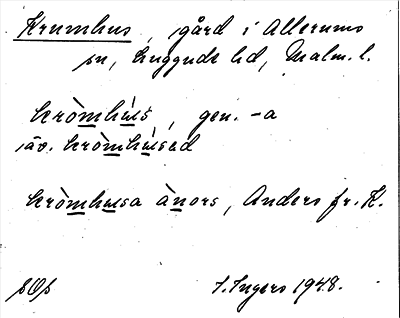 Krumhus, gård i Allerums
sn, Luggude hd, Malm. l.
kròmhu̱s, gen. -a
äv. kròmhu̱sed
kròmhu̱sa ànors, Anders fr. K.
I. Ingers 1948.